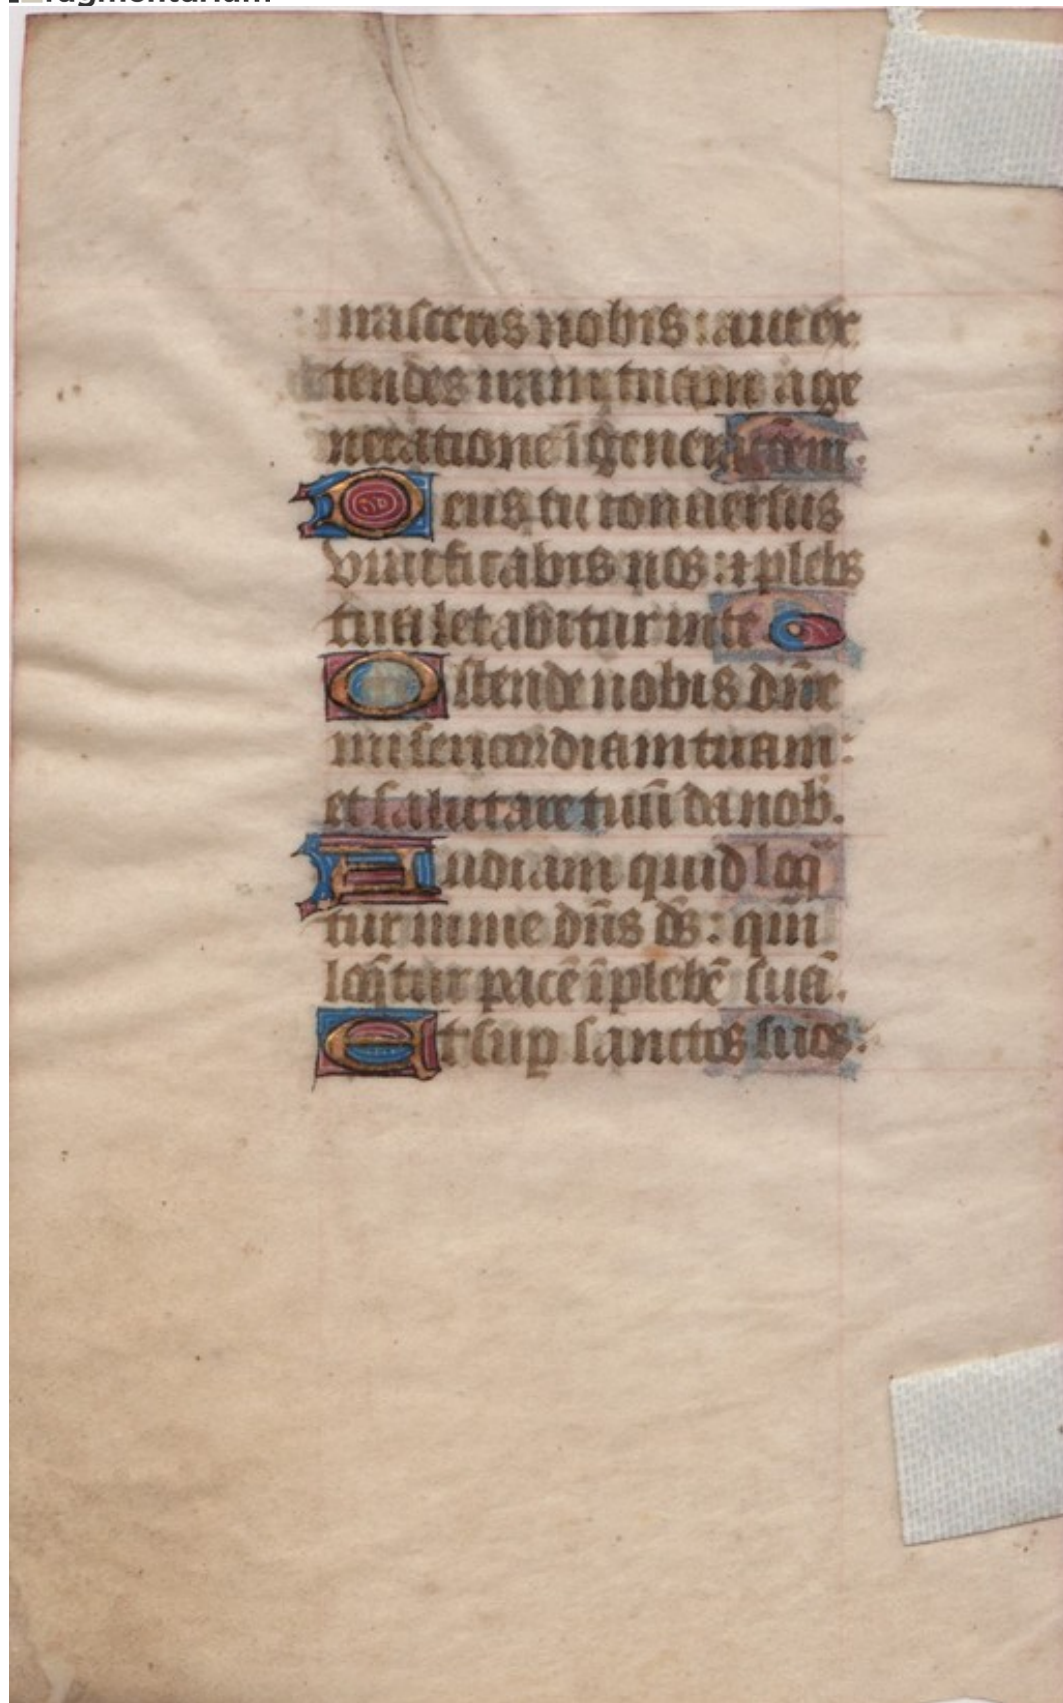 irasceris nobis : aut ex
tendes iram tuam a ge
neratione ī generacōem.
Deus tu conuersus
viuificabis nos : ⁊ plebs
tua letabitur in te
Ostende nobis dn̄e
misericordiam tuam :
et salutare tuū da nob̄.
Audiam quid loq̄
tur in me dn̄s ds̄ : qm̄
loq̄tur pacē ī plebē suā.
Et sup̱ sanctos suos :